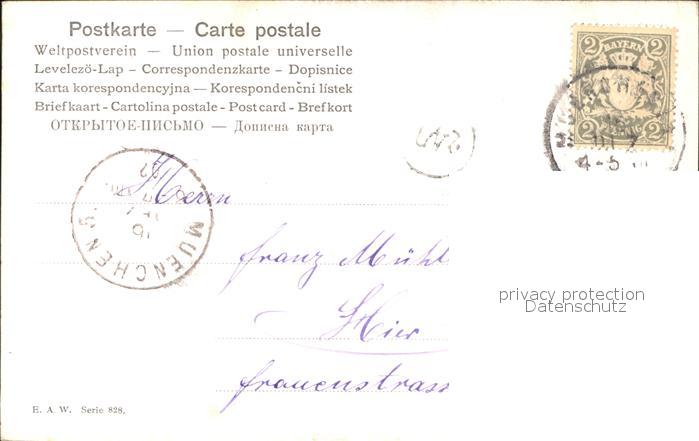 Postkarte — Carte postale
Weltpostverein — Union postale universelle
Levelező-Lap – Correspondenzkarte – Dopisnice
Karta korespondencyjna — Korespondenční lístek
Briefkaart - Cartolina postale - Postcard - Brefkort
ОТКРЫТОЕ-ПИСЬМО — Дописна карта
2 BAYERN 2
2 2
4-5
MUENCHEN
Herrn
Franz Mühl
Hier
Frauenstrass
privacy protection
Datenschutz
E. A. W. Serie 828.